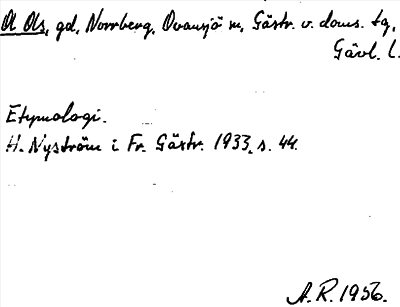 Ol Ols, gd, Norrberg, Ovansjö sn, Gästr. v. doms. tg,
Gävl. l.
Etymologi.
H. Nyström i Fr. Gästr. 1933, s. 44.
A.R. 1956.